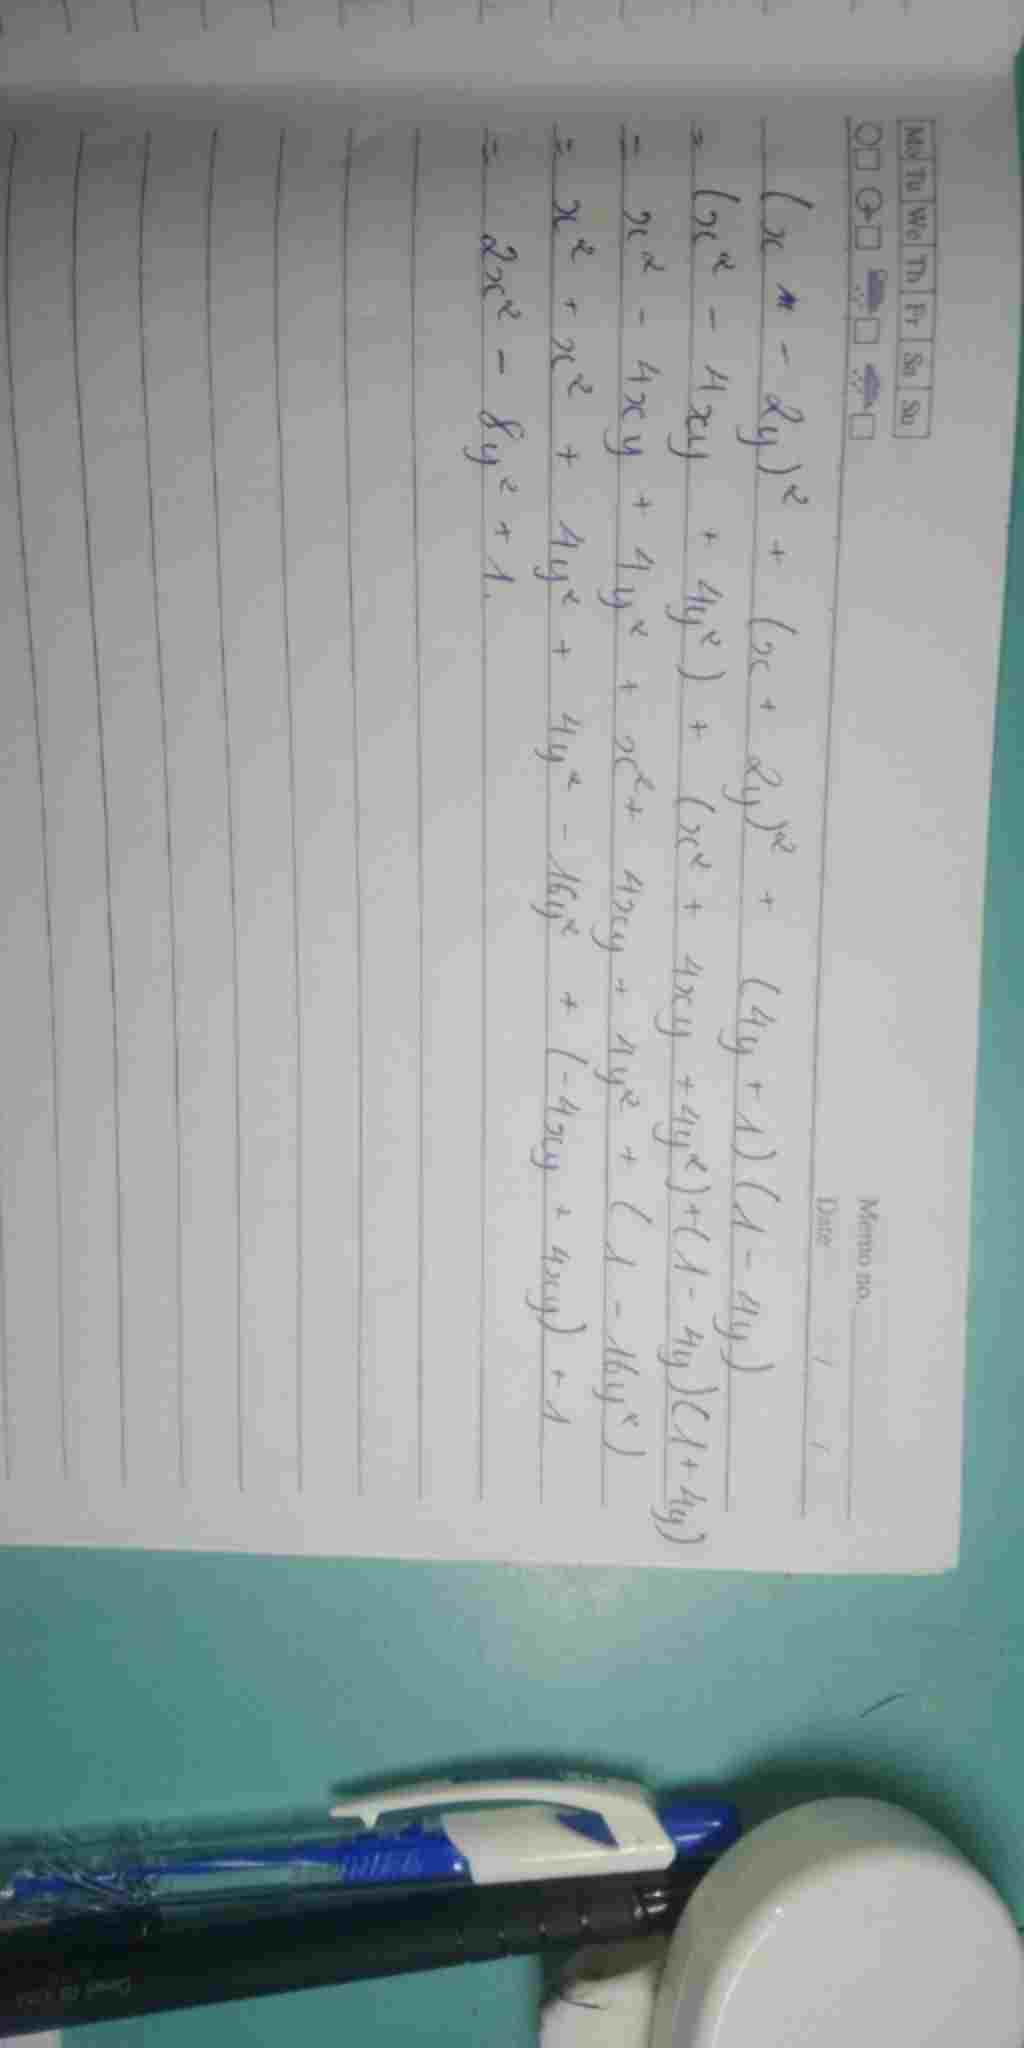 Mo Tu We Th Fr Sa Su
Memo no.
Date / /
(x - 2y)² + (x + 2y)² + (4y + 1)(1 - 4y)
= (x² - 4xy + 4y²) + (x² + 4xy + 4y²) + (1 - 4y)(1 + 4y)
= x² - 4xy + 4y² + x² + 4xy + 4y² + (1 - 16y²)
= x² + x² + 4y² + 4y² - 16y² + (-4xy + 4xy) + 1
= 2x² - 8y² + 1.